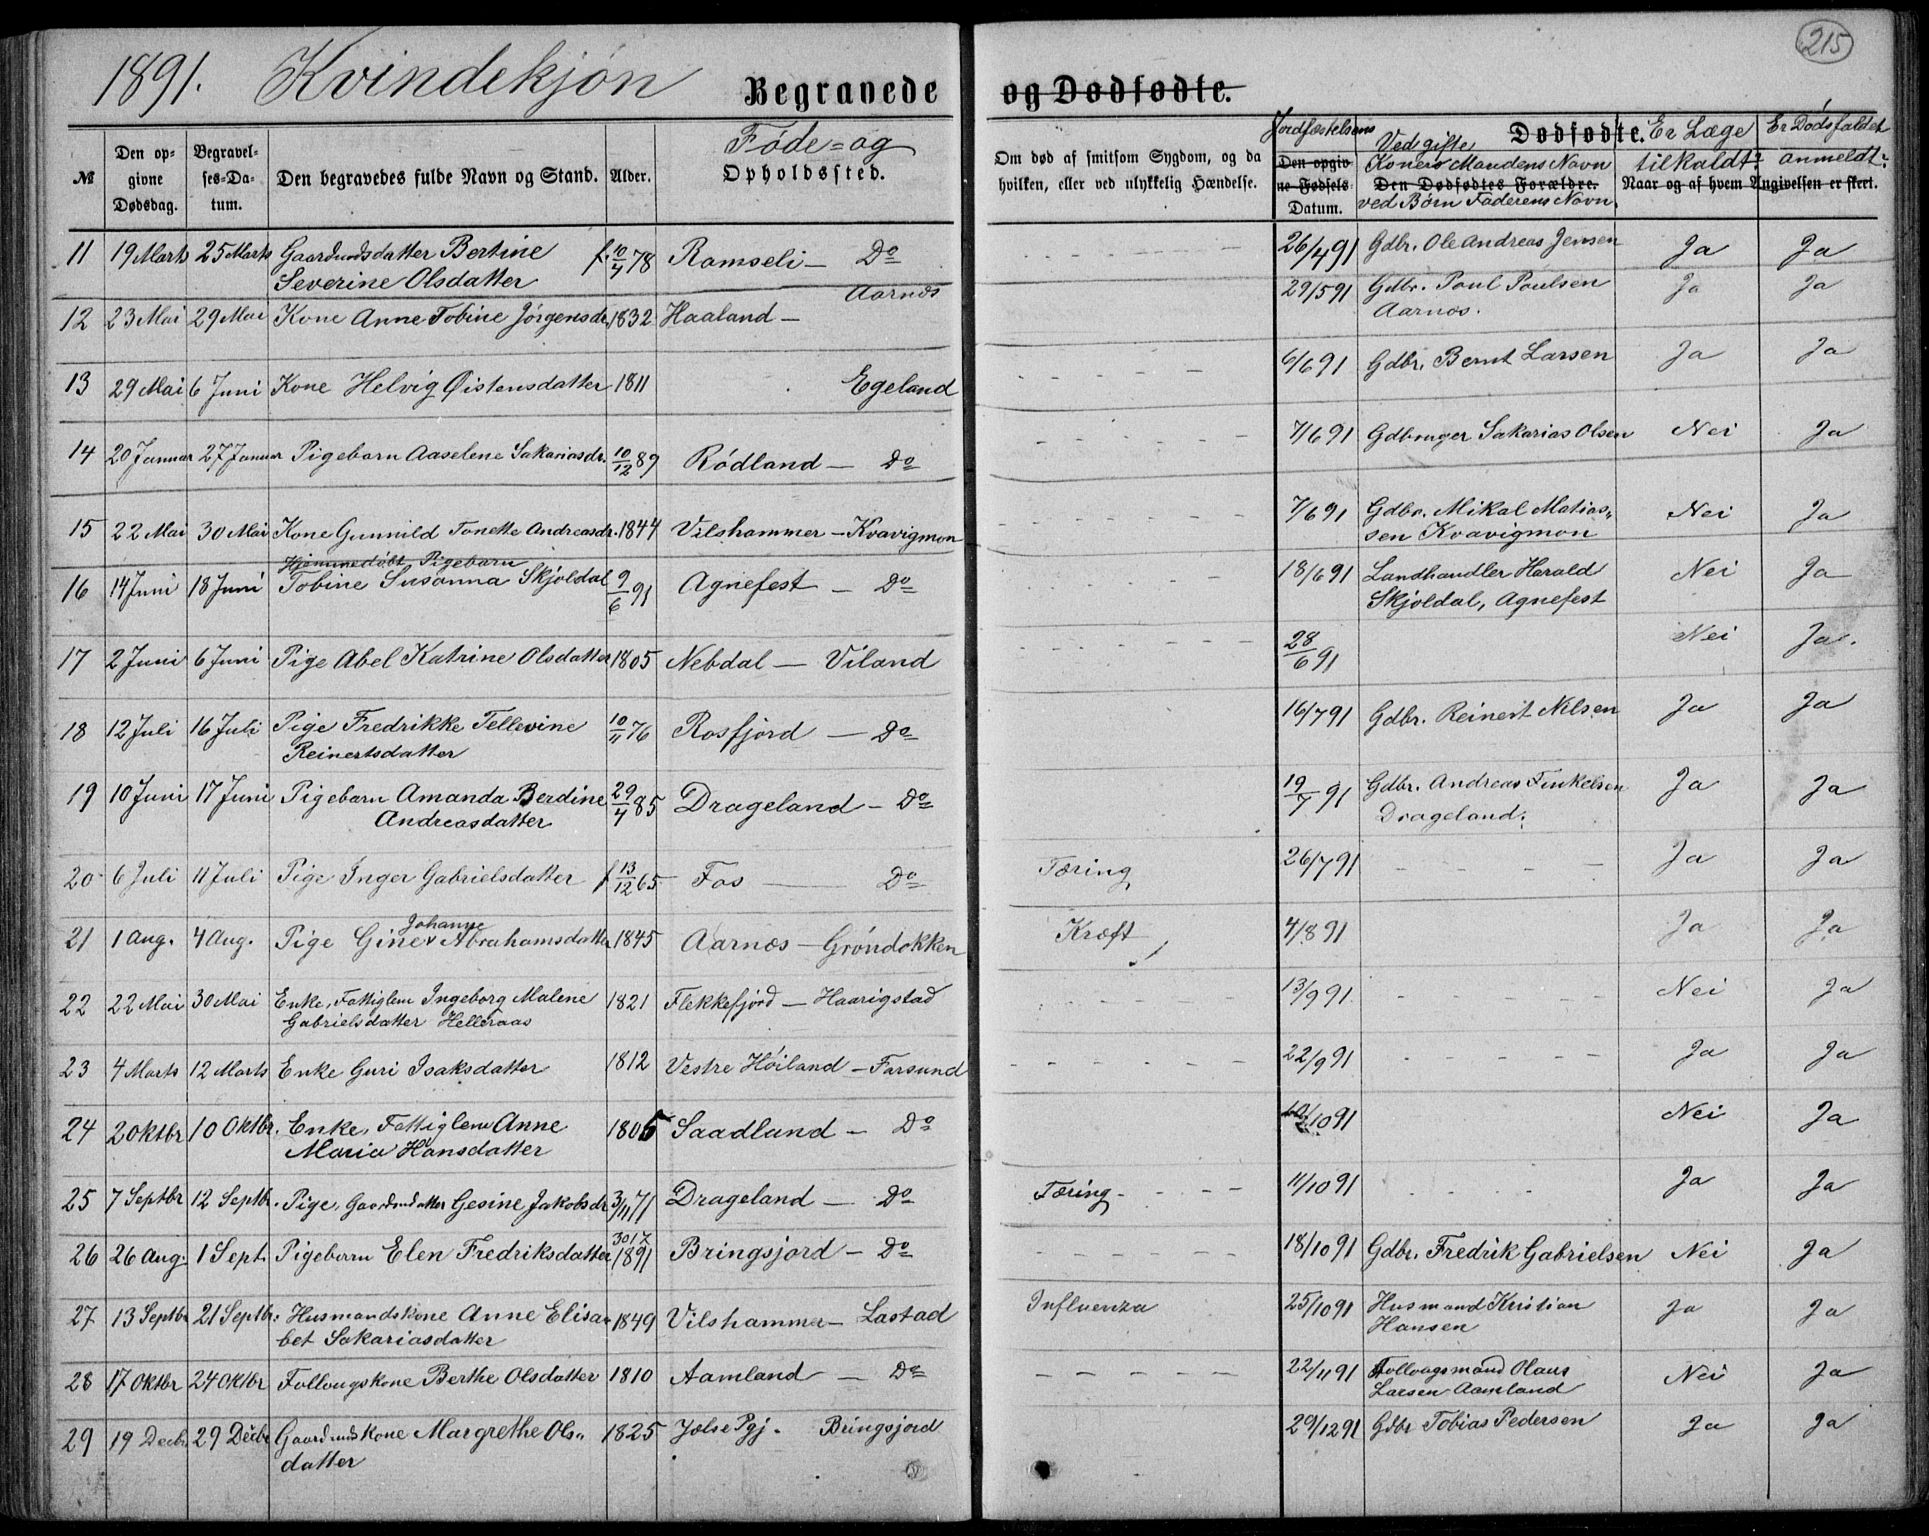 215
1891. Kvindekjøn
Begravede og Dødfødte.
№
Den opgivne Dødsdag.
Begravelses-Datum.
Den begravedes fulde Navn og Stand.
Alder.
Føde= og
Opholdssted.
Om død af smitsom Sygdom, og da
hvilken, eller ved ulykkelig Hændelse.
Jordfæstelsens
Den opgivne Fødsels-
Datum.
Dødfødte.
Ved gifte
Koner Mandens Navn
Den Dødfødtes Forældre.
ved Børn Faderens Navn.
Er Læge
tilkaldt?
Er Dødsfaldet
anmeldt?
Naar og af hvem Angivelsen er skeet.
11 19 Marts 25 Marts Gaardmdsdatter Bertine f. 10/4 78 Ramseli — Do - - - - - 26/4 91 Gdbr. Ole Andreas Jensen Ja Ja
Severine Olsdatter
12 23 Mai 29 Mai Kone Anne Tobine Jørgensdr. 1832 Haaland — Aarnes 29/5 91 Gdbr. Poul Poulsen Ja Ja
Aarnes.
13 29 Mai 6 Juni Kone Helvig Øistensdatter 1811 Egeland - - - - - 6/6 91 Gdbr. Bernt Larsen Ja Ja
14 20 Januar 27 Januar Pigebarn Aaselene Sakariasdr. 10/12 89 Rødland — Do - - - - - 7/6 91 Gdbruger Sakarias Olsen Nei Ja
15 22 Mai 30 Mai Kone Gunnild Tonette Andreasdr. 1844 Vilshammer — Kvavigmon - - - - - 7/6 91 Gdbr. Mikal Matias„ Nei Ja
sen Kvavigmon
Hjemmedøbt Pigebarn
16 14 Juni 18 Juni Tobine Susanna Skjoldal 9/6 91 Agnefest — Do - - - - - 18/6 91 Landhandler Harald Nei Ja
Skjoldal, Agnefest
17 2 Juni 6 Juni Pige Abel Katrine Olsdatter 1805 Nebdal — Viland - - - - - 28/6 91 Nei Ja.
18 12 Juli 16 Juli Pige Fredrikke Tellevine 10/11 76 Rosfjord — Do 16/7 91 Gdbr. Reinert Nilsen Ja Ja
Reinertsdatter
19 10 Juni 17 Juni Pigebarn Amanda Berdine 29/4 85 Drageland — Do 19/7 91 Gdbr. Andreas Tinkelsen Ja Ja
Andreasdatter Drageland.
20 6 Juli 11 Juli Pige Inger Gabrielsdatter f 13/12 65 Fos — Do Tæring 26/7 91 - - - - Ja Ja
Johanne
21 1 Aug. 4 Aug. Pige Gine Abrahamsdatter 1845 Aarnes — Grøndokken Kræft 4/8 91 Ja Ja
22 22 Mai 30 Mai Enke, Fattiglem Ingeborg Malene 1821 Flekkefjord — Haarigstad - - - - - 13/9 91 - - - - Nei Ja
Gabrielsdatter Helleraas
23 4 Marts 12 Marts Enke Guri Isaksdatter 1812 Vestre Høiland — Farsund - - - - - 22/9 91 - - - - - Ja Ja
24 2 Oktbr 10 Oktbr. Enke, Fattiglem Anne 1805 Saadland — Do /10 91 Nei Ja
Maria Hansdatter
25 7 Septbr 12 Septbr. Pige, Gaardmdatter Gesine Jakobsdr 3/11 71 Drageland — Do Tæring - - - - 11/10 91 - - - - Ja Ja
26 26 Aug. 1 Sept. Pigebarn Elen Fredriksdatter 30/7 1891 Bringsjord — Do - - - - - 18/10 91 Gdbr. Fredrik Gabrielsen Nei Ja
27 13 Septbr 21 Septbr: Husmandskone Anne Elisa= 1849 Vilshammer — Lastad Influenza 25/10 91 Husmand Kristian Ja Ja
bet Sakariasdatter Hansen
28 17 Oktbr 24 Oktbr Follougskone Berthe Olsdatter 1810 Aamland — Do - - - - - 22/11 91 Follougsmand Olaus Nei Ja
Larsen Aamland
29 19 Decbr 29 Decbr Gaardmdskone Margrethe Ols„ 1825 Jølse Pgj. Bringsjord 29/12 91 Gdbr Tobias Pedersen Ja Ja
datter